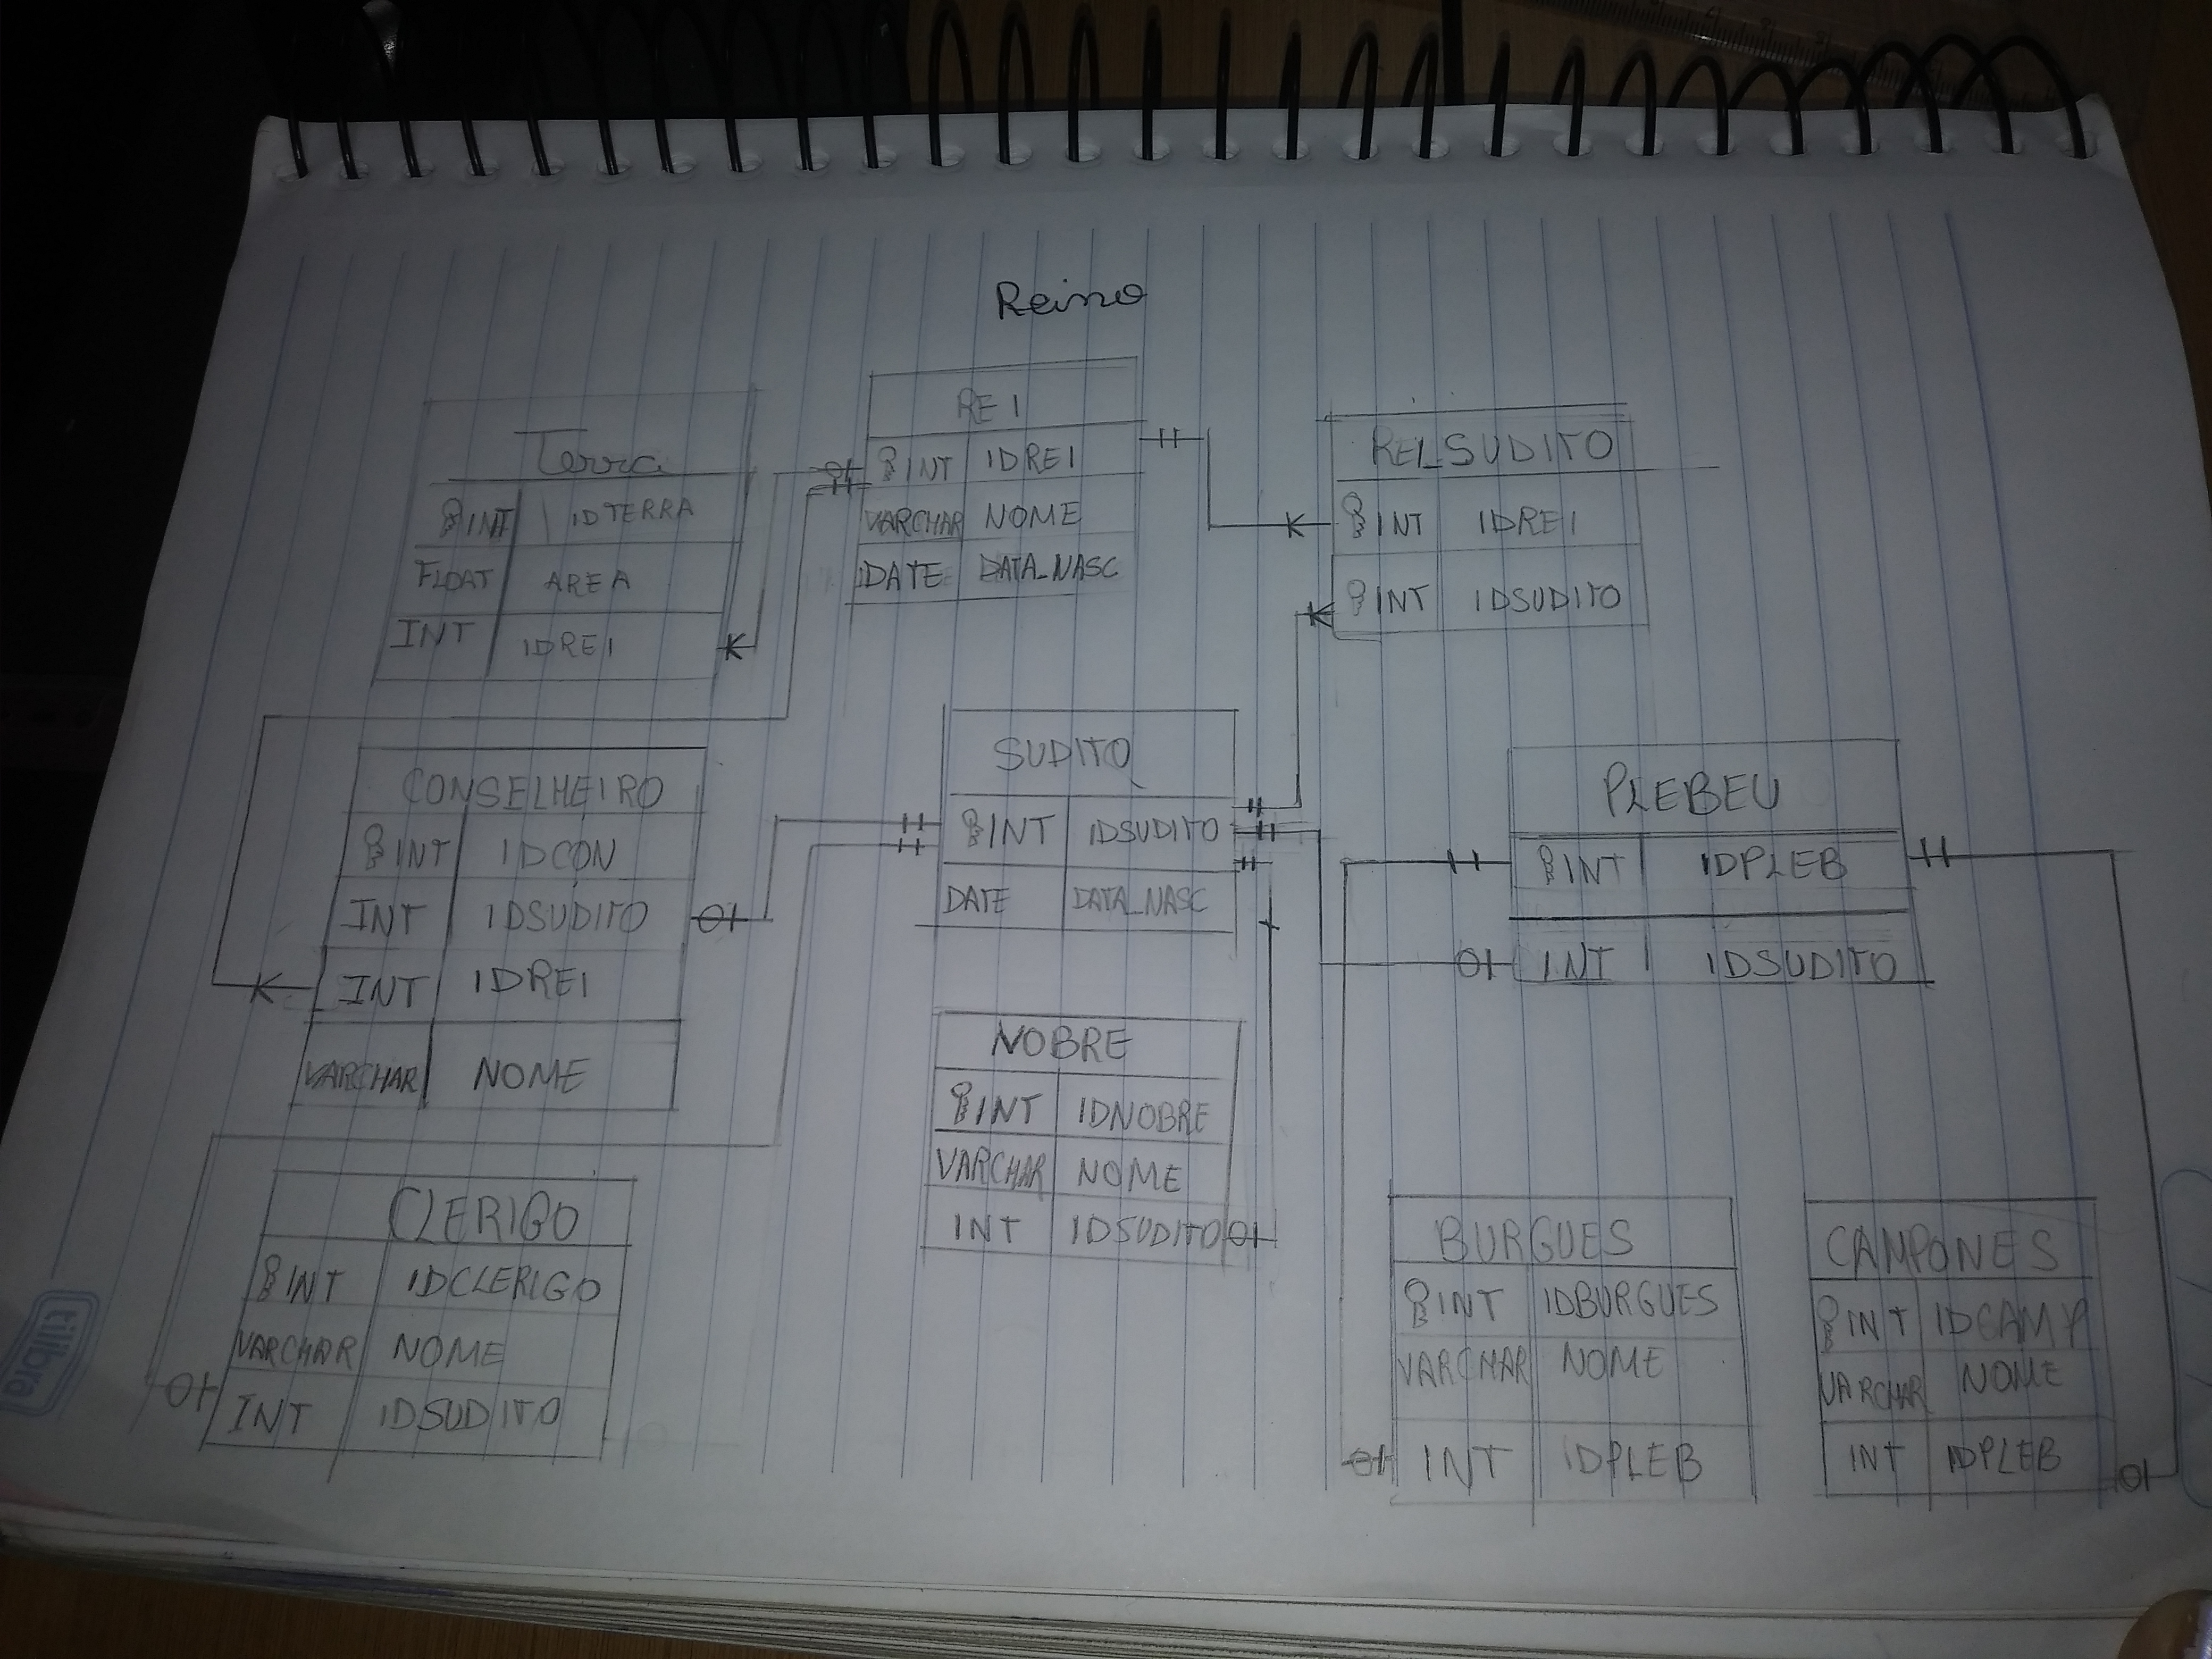 Reino
Terra
INT IDTERRA
FLOAT AREA
INT IDREI
REI
INT IDREI
VARCHAR NOME
DATE DATA_NASC
REI_SUDITO
INT IDREI
INT IDSUDITO
CONSELHEIRO
INT IDCON
INT IDSUDITO
INT IDREI
VARCHAR NOME
SUDITO
INT IDSUDITO
DATE DATA_NASC
PLEBEU
INT IDPLEB
INT IDSUDITO
NOBRE
INT IDNOBRE
VARCHAR NOME
INT IDSUDITO
CLERIGO
INT IDCLERIGO
VARCHAR NOME
INT IDSUDITO
BURGUES
INT IDBURGUES
VARCHAR NOME
INT IDPLEB
CAMPONES
INT IDCAMP
VARCHAR NOME
INT IDPLEB
tilibra